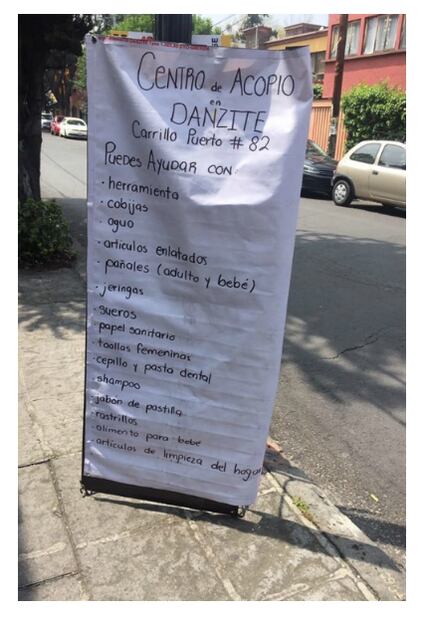 CENTRO de ACOPIO
en
DANZITE
Carrillo Puerto # 82
Puedes AYUDAR CON:
· herramienta
· cobijas
· agua
· artículos enlatados
· pañales (adulto y bebé)
· jeringas
· sueros
· papel sanitario
· toallas femeninas
· cepillo y pasta dental
· shampoo
· jabón de pastilla
· rastrillos
· alimento para bebé
· artículos de limpieza del hogar